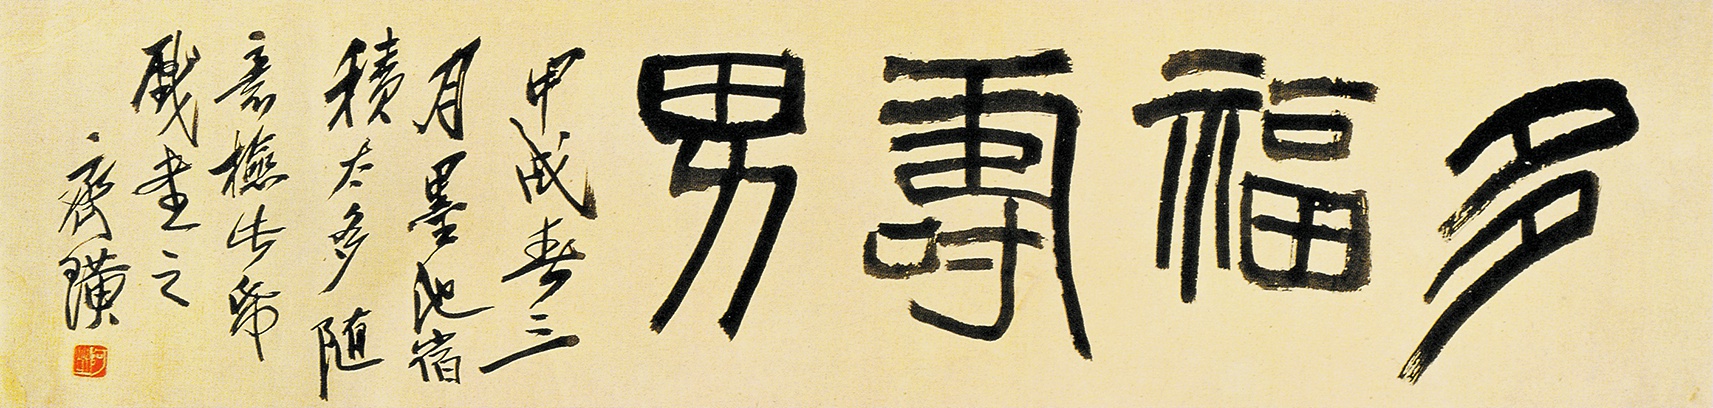 多福壽男
甲戌春三
月墨池宿
積太多随
意檢此帋
戲書之
齊璜